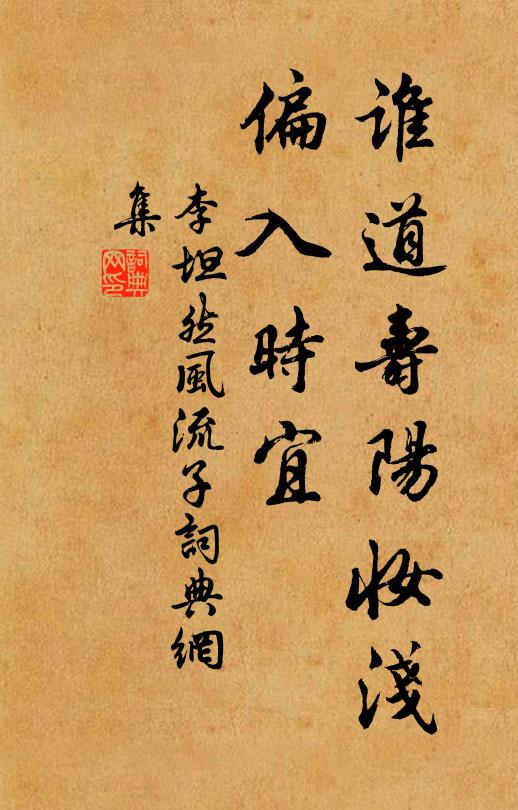 誰道壽陽妝淺
偏入時宜
李坦然風流子詞典網
集
詞典
網印